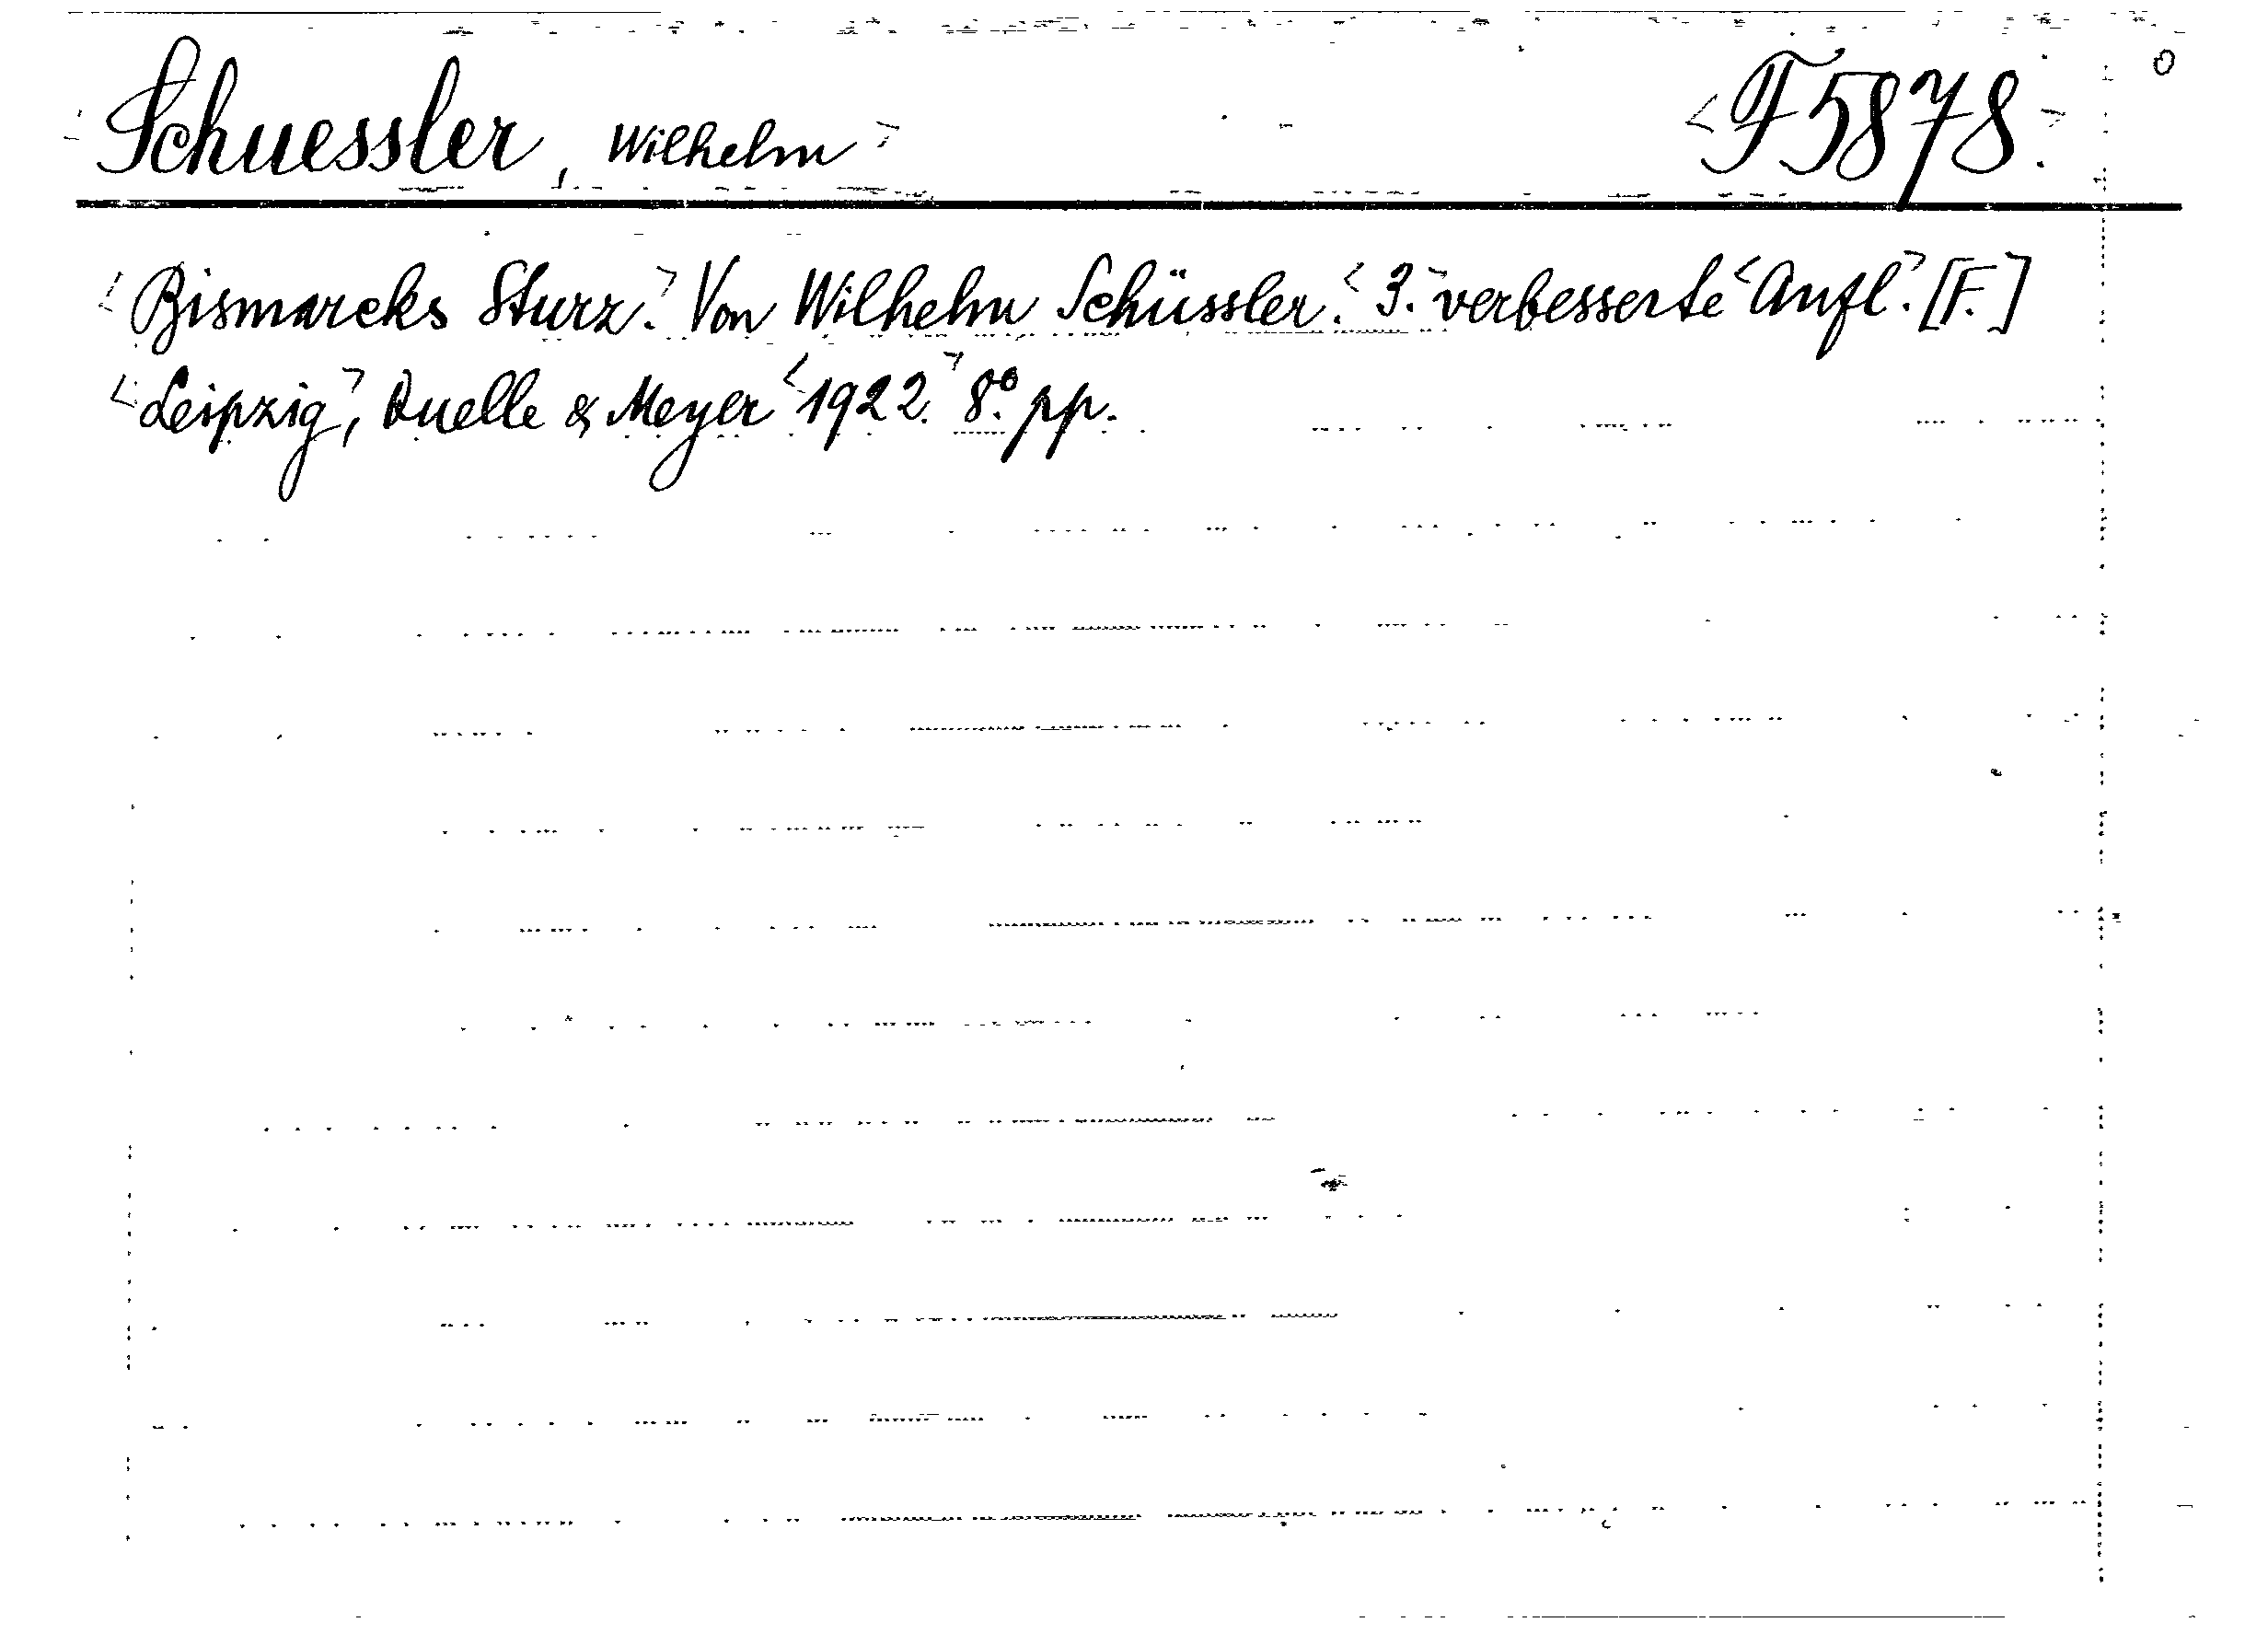 Schuessler, Wilhelm F5878.
Bismarcks Sturz. Von Wilhelm Schüssler. 3. verbesserte Aufl. [F.]
Leipzig, Quelle & Meyer 1922. 8° pp.